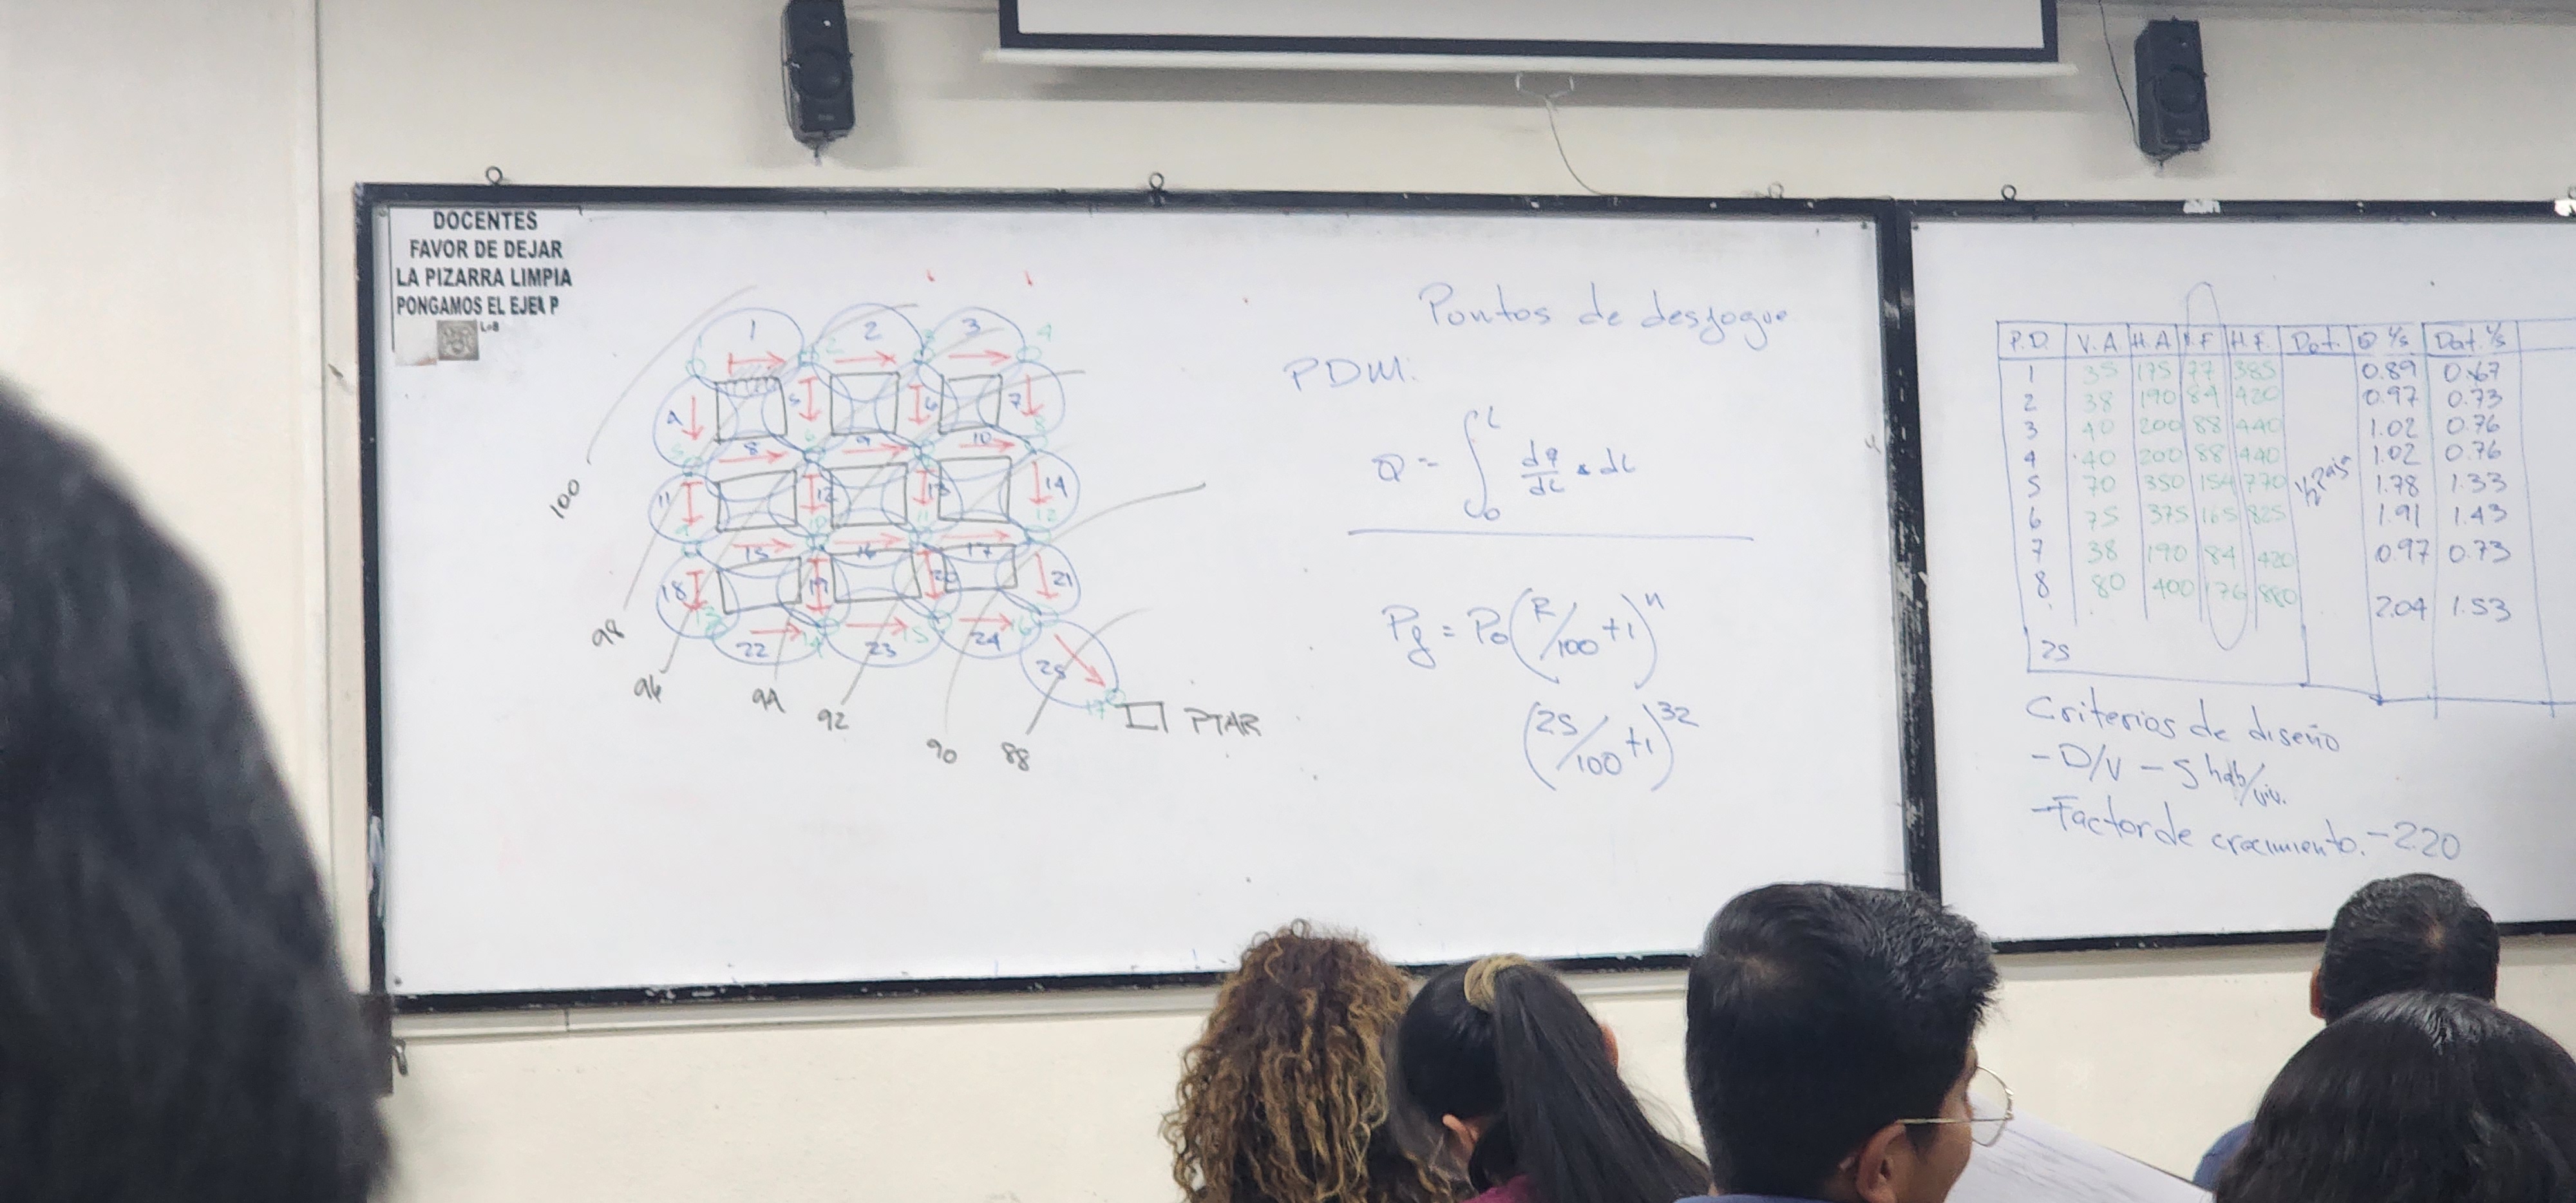 DOCENTES
FAVOR DE DEJAR
LA PIZARRA LIMPIA
PONGAMOS EL EJEM P
LoB
1 2 3 4
4 5 6 7
8 9 10
11 12 13 14
15 16 17
18 19 20 21
22 23 24
25
17
PTAR
100
98
96
94
92
90
88
Pontos de desfogue
PDM:
Q = ∫₀ᴸ dq/dL * dL
Pf = Po (R/100 +1)ⁿ
(25/100 +1)³²
P.D. V.A. H.A V.F H.F. Dot. Q l/s Dot. l/s
1 35 175 77 385 0.89 0.67
2 38 190 84 420 0.97 0.73
3 40 200 88 440 1.02 0.76
4 40 200 88 440 1.02 0.76
5 70 350 154 770 1.78 1.33
6 75 375 165 825 1.91 1.43
7 38 190 84 420 0.97 0.73
8 80 400 176 880 2.04 1.53
25
Criterios de diseño
- D/V - 5 hab/viv.
- Factor de crecimiento. - 2.20